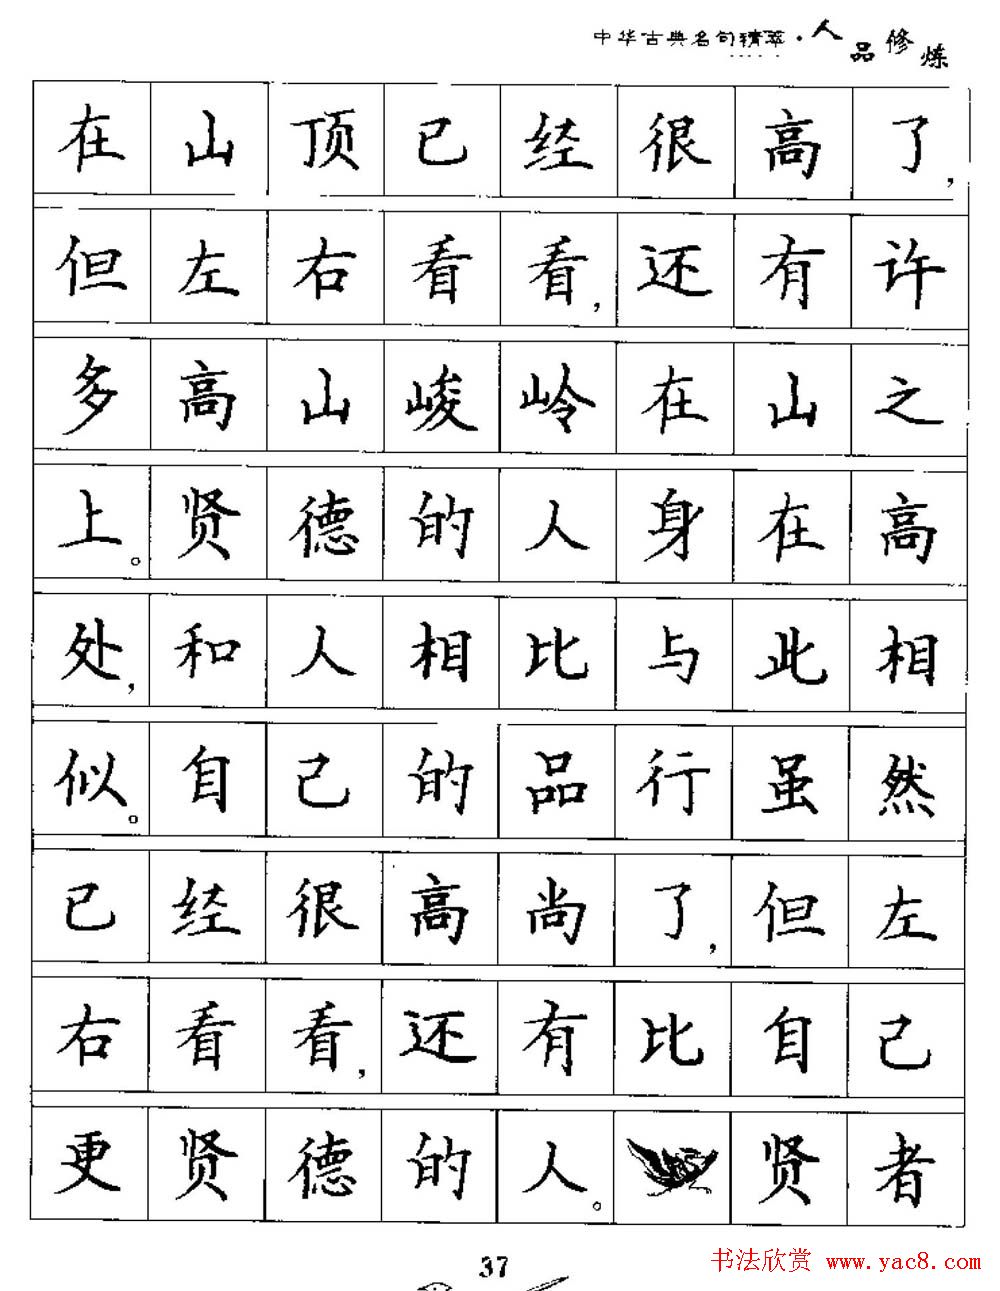 中华古典名句精萃·人品修炼
在山顶已经很高了,
但左右看看,还有许
多高山峻岭在山之
上。贤德的人身在高
处,和人相比与此相
似。自己的品行虽然
已经很高尚了,但左
右看看,还有比自己
更贤德的人。贤者
37
书法欣赏 www.yac8.com